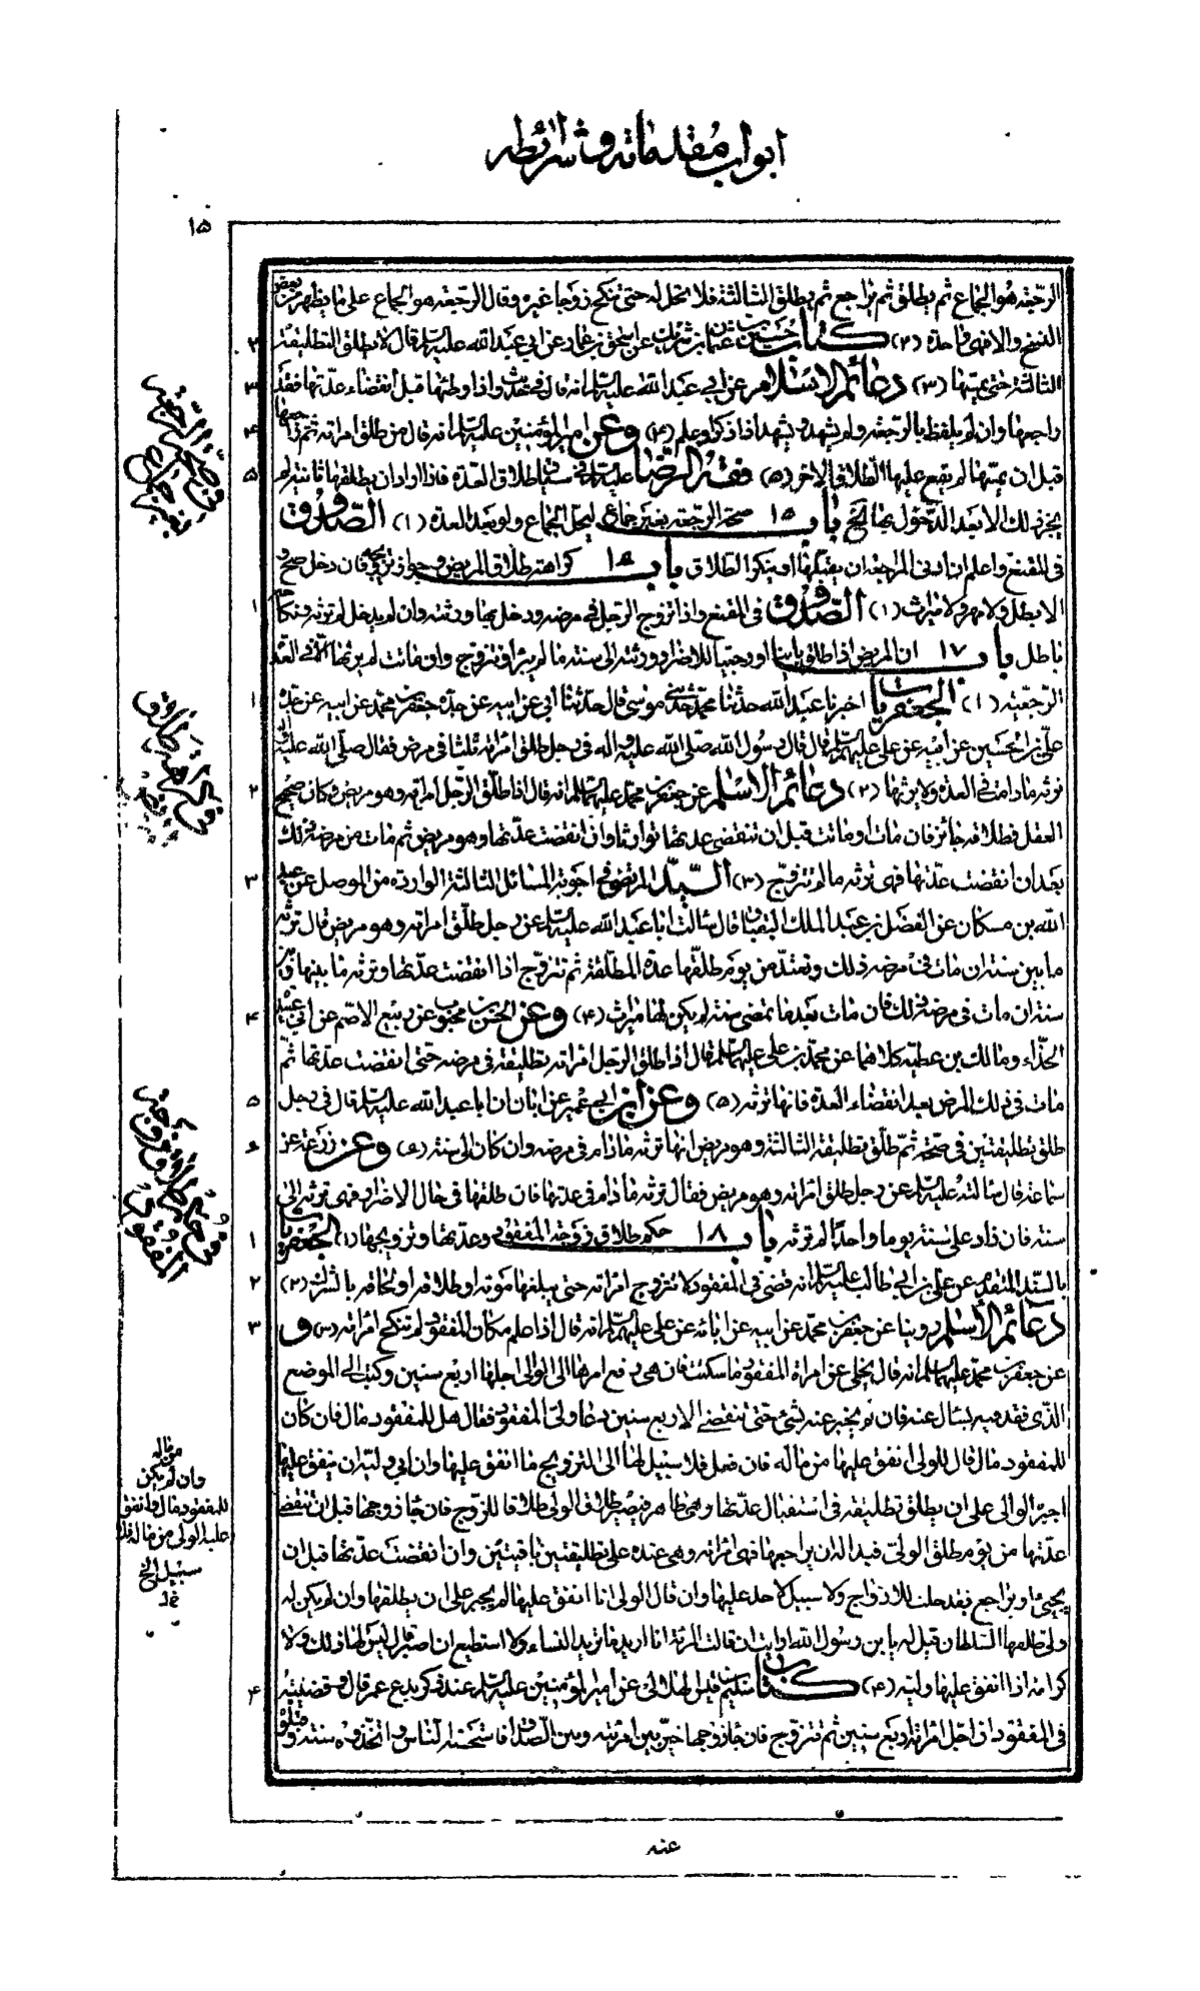 ابواب مقدماته وشرائطه
١٥
الرجعة هو الجماع ثم يطلق ثم يراجع ثم يطلق الثالثة فلا تحل له حتى تنكح زوجا غيره وقال الرجعة هو الجماع على ما يظهر من بعض
النسخ والا فهى واحدة (٢) كتاب حسين بن عثمان بن شريك عن اسحق بن عمار عن ابي عبد الله عليه السلام قال لا يطلق التطليقة ٢
الثالثة حتى يمسها (٣) دعائم الاسلام عن ابي عبد الله عليه السلام انه قال في حديث واذا وطئها قبل انقضاء عدتها فقد ٣
راجعها وان لم يلفظ بالرجعة ولم يشهد فليشهد اذا ذكر وعلم (٤) وعن امير المؤمنين عليه السلام انه قال من طلق امراته ثم راجعها ٤
قبل ان يمسها لم يقع عليها الطلاق الاخر (٥) فقه الرضا عليه السلام في سياق طلاق العدة فاذا اراد ان يطلقها ثانية لم ٥
يجز ذلك الا بعد الدخول بها الخ باب ١٥ صحة الرجعة بغير جماع ليحل الجماع ولو بعد العدة (١) الصدوق
في المقنع واعلم ان ادنى المراجعة ان يقبلها او ينكر الطلاق باب ١٥ كراهة طلاق المريض وجواز تزويجه فان دخل صح و
الا بطل ولا مهر ولا ميراث (١) الصدوق في المقنع واذا تزوج الرجل في مرضه ودخل بها ورثته وان لم يدخل لم ترثه ونكاحه ١
باطل باب ١٧ ان المريض اذا طلق باينا او رجعيا للاضرار ورثته الى سنة ما لم يبرأ او تتزوج وان ماتت لم يرثها الا في العدة
الرجعية (١) الجعفريات اخبرنا عبد الله حدثنا محمد حدثني موسى قال حدثنا ابي عن ابيه عن جده جعفر بن محمد عن ابيه عن جده ١
علي بن الحسين عن ابيه عن علي عليهم السلام قال قال رسول الله صلى الله عليه واله في رجل طلق امراته ثلثا في مرض فقال صلى الله عليه واله
ترثه ما دامت في العدة ولا يرثها (٢) دعائم الاسلام عن جعفر بن محمد عليهما السلام انه قال اذا طلق الرجل امراته وهو مريض وكان صحيح ٢
العقل فطلاقه جائز فان مات او ماتت قبل ان تنقضي عدتها توارثا وان انقضت عدتها وهو مريض ثم مات من مرضه ذلك
بعد ان انقضت عدتها فهى ترثه ما لم تتزوج (٣) السيد المرتضى في اجوبة المسائل الثالثة الواردة من الموصل عن عبد ٣
الله بن مسكان عن الفضل بن عبد الملك البقباق قال سالت ابا عبد الله عليه السلام عن رجل طلق امراته وهو مريض قال ترثه
ما بين سنة ان مات في مرضه ذلك وتعتد من يوم طلقها عدة المطلقة ثم تتزوج اذا انقضت عدتها وترثه ما بينها وبين
سنة ان مات في مرضه ذلك فان مات بعد ما تمضي سنة لم يكن لها ميراث (٤) وعن الحسن بن محبوب عن ربيع الاصم عن ابي عبيدة ٤
الحذاء ومالك بن عطية كلاهما عن محمد بن علي عليهما السلام قال اذا طلق الرجل امراته تطليقة في مرضه حتى انقضت عدتها ثم
مات في ذلك المرض بعد انقضاء العدة فانها ترثه (٥) وعن ابن ابي عمير عن ابان ان ابا عبد الله عليه السلام قال في رجل ٥
طلق تطليقتين في صحة ثم طلق تطليقة الثالثة وهو مريض انها ترثه ما دام في مرضه وان كان الى سنة (٦) وعن زرعة عن ٦
سماعة قال سالته عليه السلام عن رجل طلق امراته وهو مريض فقال ترثه ما دام في عدتها فان طلقها في حال الاضرار فهى ترثه الى
سنة فان زاد على سنة يوما واحدا لم ترثه باب ١٨ حكم طلاق زوجة المفقود وعدتها وتزويجها (١) الجعفريات ١
بالسند المتقدم عن علي بن ابي طالب عليه السلام انه قضى في المفقود لا تتزوج امراته حتى يبلغها موته او طلاقه او لحاقه بالشرك (٢) ٢
دعائم الاسلام روينا عن جعفر بن محمد عن ابيه عن ابائه عن علي عليهم السلام انه قال اذا علم مكان المفقود لم تنكح امراته (٣) و ٣
عن جعفر بن محمد عليهما السلام انه قال يخلى عن امراة المفقود ما سكتت فان هى رفع امرها الى الوالى اجلها اربع سنين وكتب الى الموضع
الذي فقد فيه يسئال عنه فان لم يخبر عنه بشيء حتى تنقضي الاربع سنين دعا ولي المفقود فقال هل للمفقود مال فان كان
للمفقود مال قال للولي انفق عليها من ماله فان فعل فلا سبيل لها الى التزويج ما انفق عليها وان ابى وليه ان ينفق عليها
اجبر الوالى على ان يطلق تطليقة في استقبال عدتها وهى طاهر فيصير طلاق الولي طلاقا للزوج فان جاء زوجها قبل ان تنقضي
عدتها من يوم طلق الولي فبدا له ان يراجعها فهى امراته وهى عنده على تطليقتين باقيتين وان انقضت عدتها قبل ان
يجيئ او يراجع فقد حلت للازواج ولا سبيل لاحد عليها وان قال الولي انا انفق عليها لم يجبر على ان يطلقها وان لم يكن له
ولي طلقها السلطان قيل له يا بن رسول الله ارايت ان قالت المرئة انا اريد ما تريد النساء ولا استطيع ان اصبر قال ليس لها ذلك ولا
كرامة اذا انفق عليها وليه (٤) كتاب سليم بن قيس الهلالي عن امير المؤمنين عليه السلام عند ذكر بدع عمر قال وقضيته ٤
في المفقود اجل امراته اربع سنين ثم تتزوج فان جاء زوجها خير بين امرئته وبين الصداق فاستحسنه الناس واتخذوه سنة
في صحة الرجعة بغير جماع
في كراهة طلاق
في حكم طلاق زوجة المفقود
من ماله
وان لم يكن
للمفقود مال وانفق
عليه الولي من ماله فلا
سبيل الخ
عنه